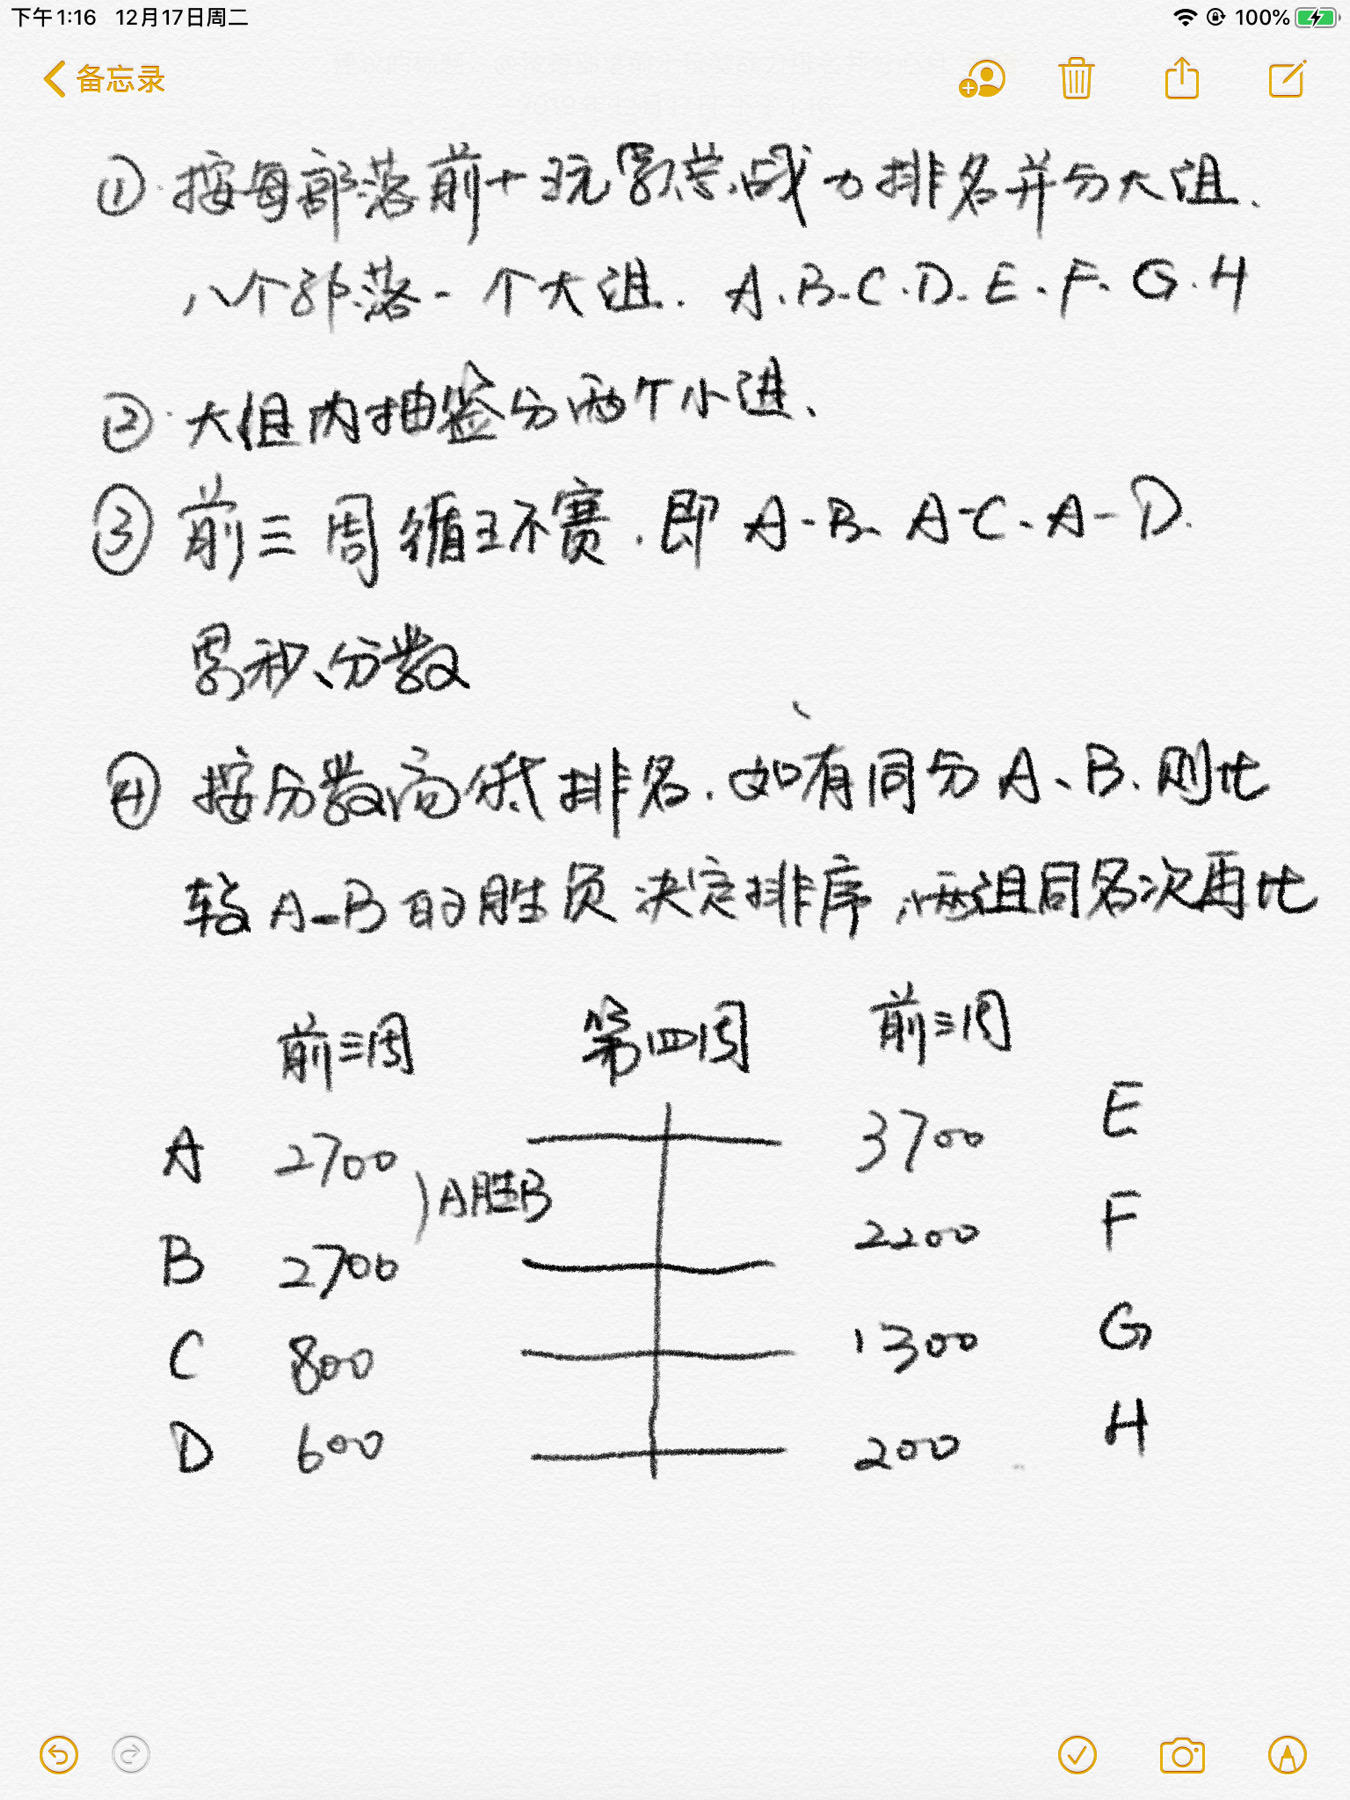 下午1:16 12月17日周二
100%
备忘录
① 按每部落前十玩家总战力排名并分大组.
八个部落一个大组. A.B.C.D.E.F.G.H
② 大组内抽签分两个小进、
③ 前三周循环赛.即 A-B、A-C、A-D.
累积分数
④ 按分数高低排名.如有同分A、B.则比
较A-B的胜负决定排序,两组同名次再比
前三周 第四周 前三周
A 2700 3700 E
)A胜B
B 2700 2200 F
C 800 1300 G
D 600 200 H